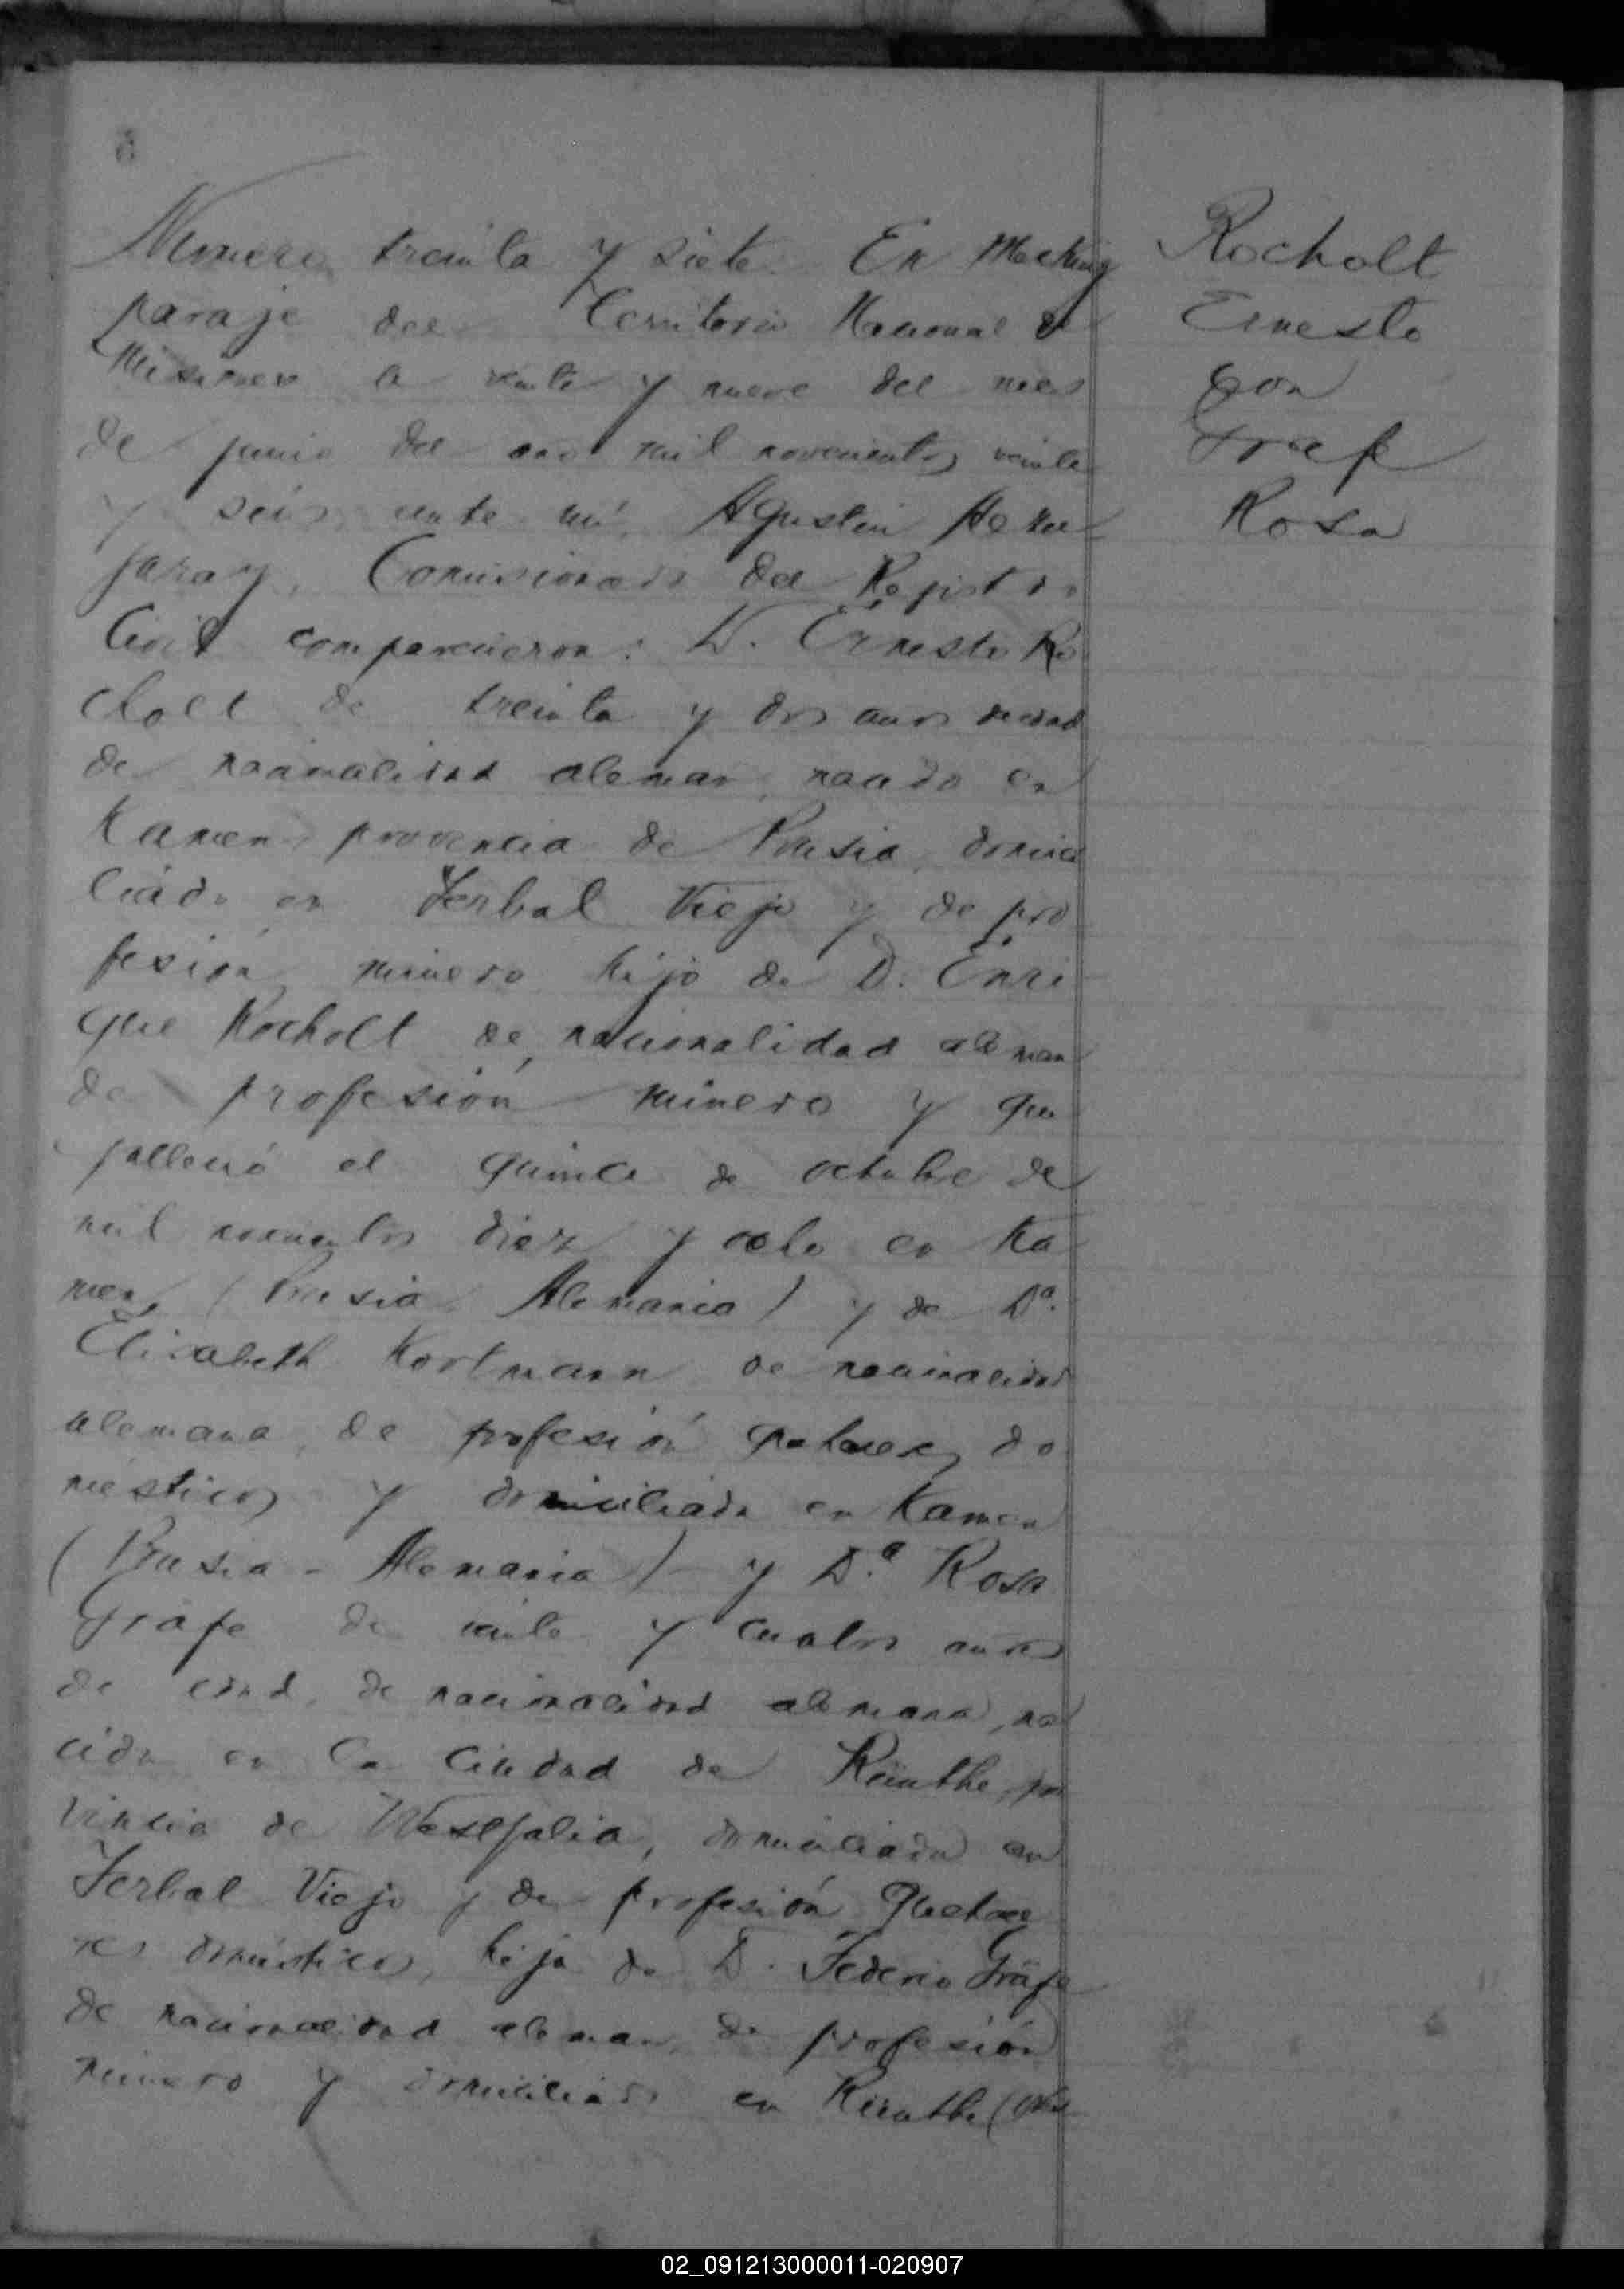 Numero treinta y siete. En Mecking
paraje del Territorio Nacional de
Misiones a veinte y nueve del mes
de junio del año mil novecientos veinte
y seis ante mí, Agustin
garay, Comisionado del Registro
Civil comparecieron: D. Ernesto Ro
cholt de treinta y dos años de edad
de nacionalidad aleman, nacido en
Kamen provencia de Prusia, domici
liado en Yerbal Viejo y de pro
fesión minero hijo de D. Enri
que Rocholt de nacionalidad aleman
de profesión minero y que
falleció el quince de octubre de
mil novecientos diez y ocho en Ka
men, (Prusia Alemania) y de Dª.
Elisabeth Kortmann de nacionalidad
alemana, de profesión quehaceres do
mésticos y domiciliada en Kamen
(Prusia - Alemania) - y D.ª Rosa
Gräfe de veinte y cuatro años
de edad, de nacionalidad alemana, na
cida en la ciudad de Rünthe, pro
vincia de Westfalia, domiciliada en
Yerbal Viejo y de profesión Quehace
res domésticos, hija de D. Federico Gräfe
de nacionalidad aleman, de profesión
minero y domiciliado en Rünthe (
Rocholt
Ernesto
con
Graf
Rosa
02_091213000011-020907